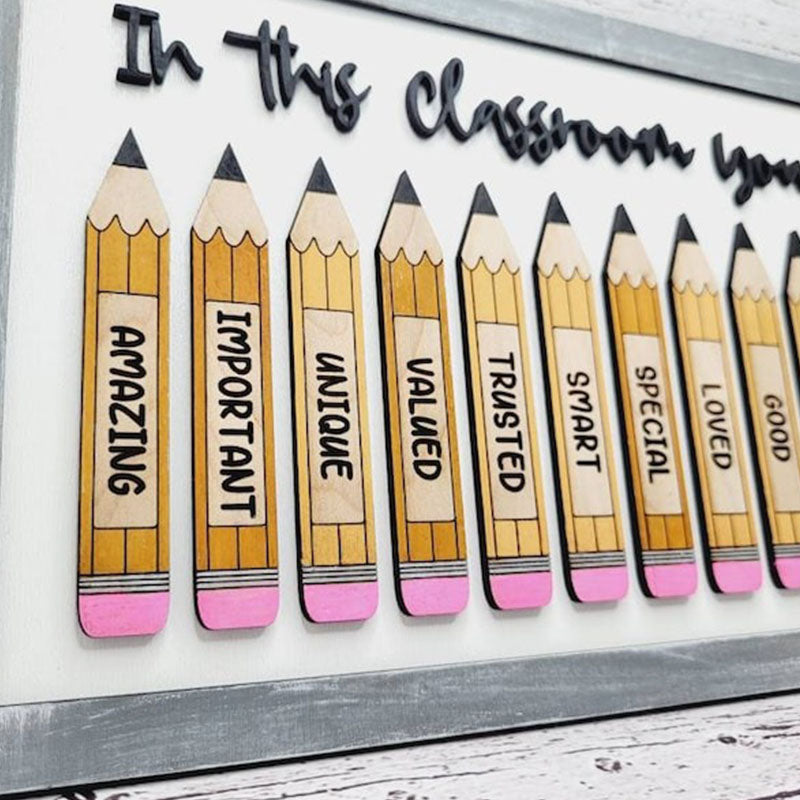 In this Classroom You
AMAZING
IMPORTANT
UNIQUE
VALUED
TRUSTED
SMART
SPECIAL
LOVED
GOOD